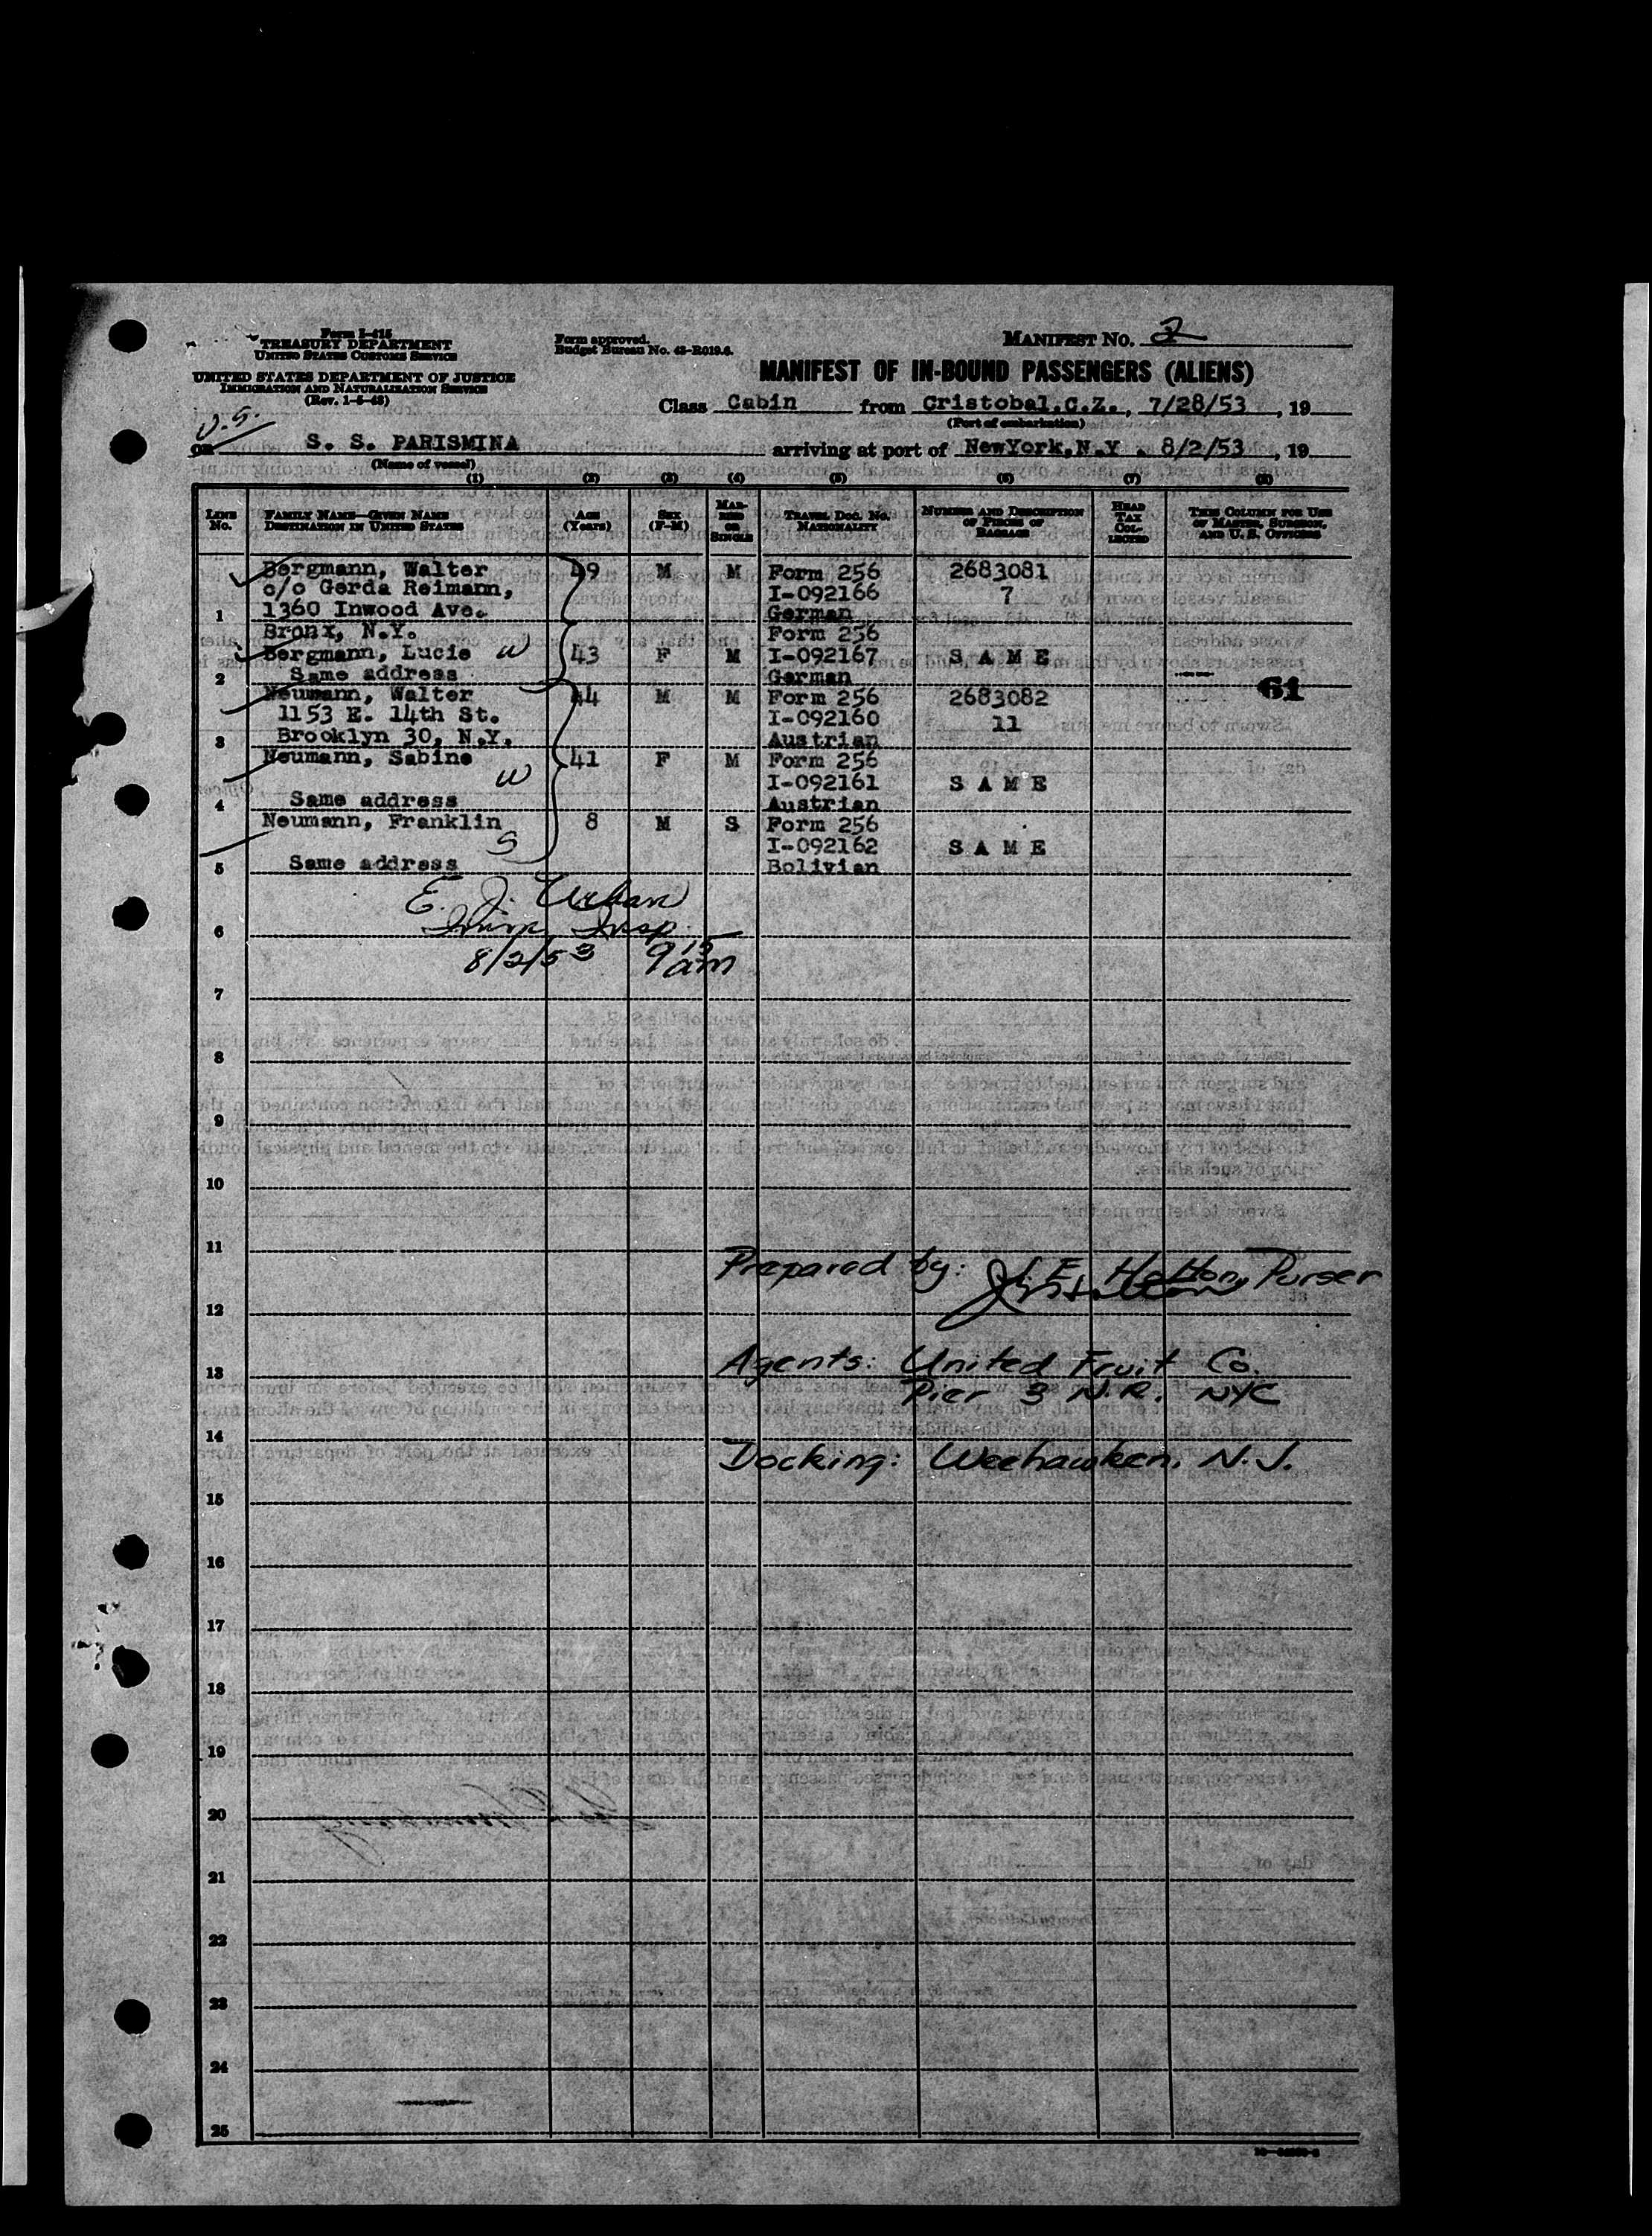 Form I-415
TREASURY DEPARTMENT
UNITED STATES CUSTOMS SERVICE
UNITED STATES DEPARTMENT OF JUSTICE
IMMIGRATION AND NATURALIZATION SERVICE
(Rev. 1-5-43)
Form approved.
Budget Bureau No. 43-R019.6.
MANIFEST NO. 2
MANIFEST OF IN-BOUND PASSENGERS (ALIENS)
Class Cabin from Cristobal, C.Z., 7/28/53, 19
(Port of embarkation)
U.S.
on S. S. PARISMINA arriving at port of NewYork, N.Y. 8/2/53, 19
(Name of vessel)
(1) (2) (3) (4) (5) (6) (7) (8)
LINE No. FAMILY NAME—GIVEN NAME DESTINATION IN UNITED STATES AGE (Years) SEX (F-M) MARRIED OR SINGLE TRAVEL DOC. NO. NATIONALITY NUMBER AND DESCRIPTION OF PIECES OF BAGGAGE HEAD TAX COLLECTED THIS COLUMN FOR USE OF MASTER, SURGEON, AND U. S. OFFICERS
Bergmann, Walter 49 M M Form 256 2683081
c/o Gerda Reimann, I-092166 7
1 1360 Inwood Ave. German
Bronx, N.Y. Form 256
Bergmann, Lucie W 43 F M I-092167 S A M E
2 Same address German
61
Neumann, Walter 44 M M Form 256 2683082
1153 E. 14th St. I-092160 11
3 Brooklyn 30, N.Y. Austrian
Neumann, Sabine 41 F M Form 256
W I-092161 S A M E
4 Same address Austrian
Neumann, Franklin 8 M S Form 256
S I-092162 S A M E
5 Same address Bolivian
E. J. Urban
6 Imm. Insp.
8/2/53 9 15 am
7
8
9
10
11
Prepared by: J. E. Hatton, Purser
12
Agents: United Fruit Co.
13
Pier 3 N.R. NYC
14
Docking: Weehawken, N.J.
15
16
17
18
19
20
21
22
23
24
25